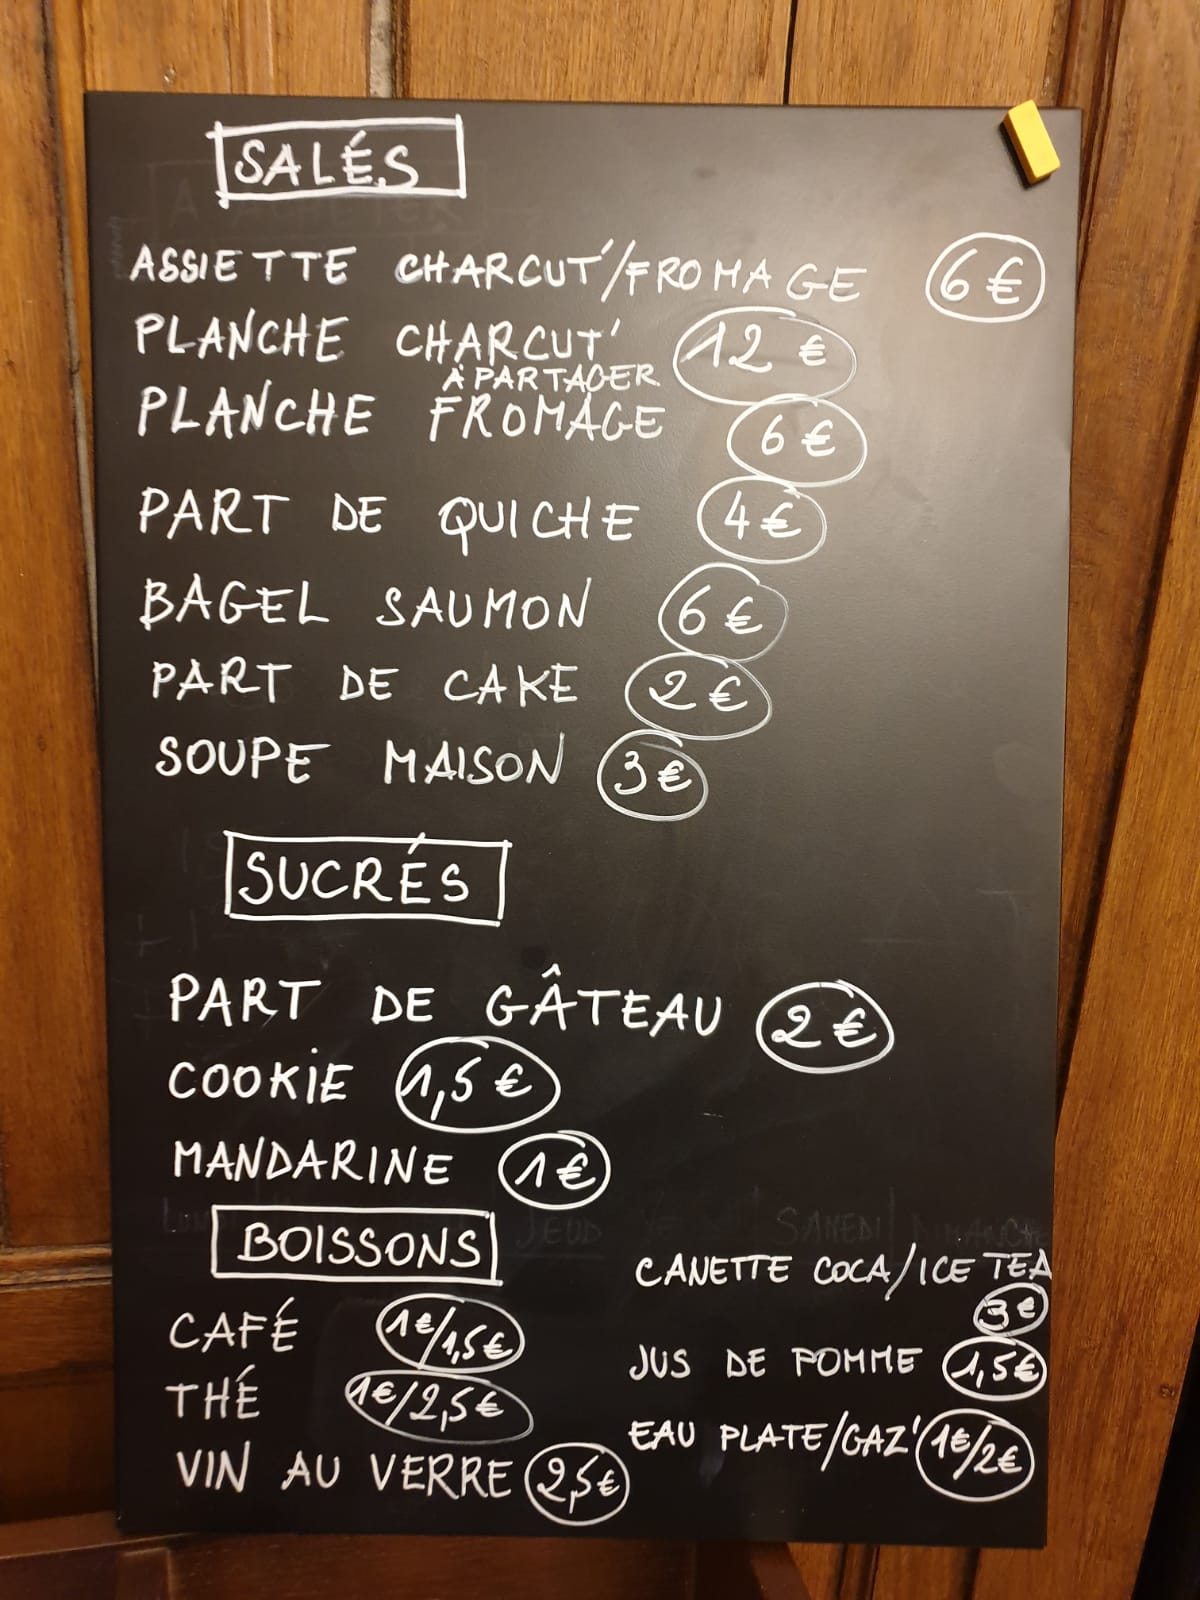 SALÉS
ASSIETTE CHARCUT'/FROMAGE 6€
PLANCHE CHARCUT' 12€
À PARTAGER
PLANCHE FROMAGE 6€
PART DE QUICHE 4€
BAGEL SAUMON 6€
PART DE CAKE 2€
SOUPE MAISON 3€
SUCRÉS
PART DE GÂTEAU 2€
COOKIE 1,5€
MANDARINE 1€
BOISSONS
CAFÉ 1€/1,5€
THÉ 1€/2,5€
VIN AU VERRE 2,5€
CANETTE COCA/ICE TEA
3€
JUS DE POMME 1,5€
EAU PLATE/GAZ' 1€/2€